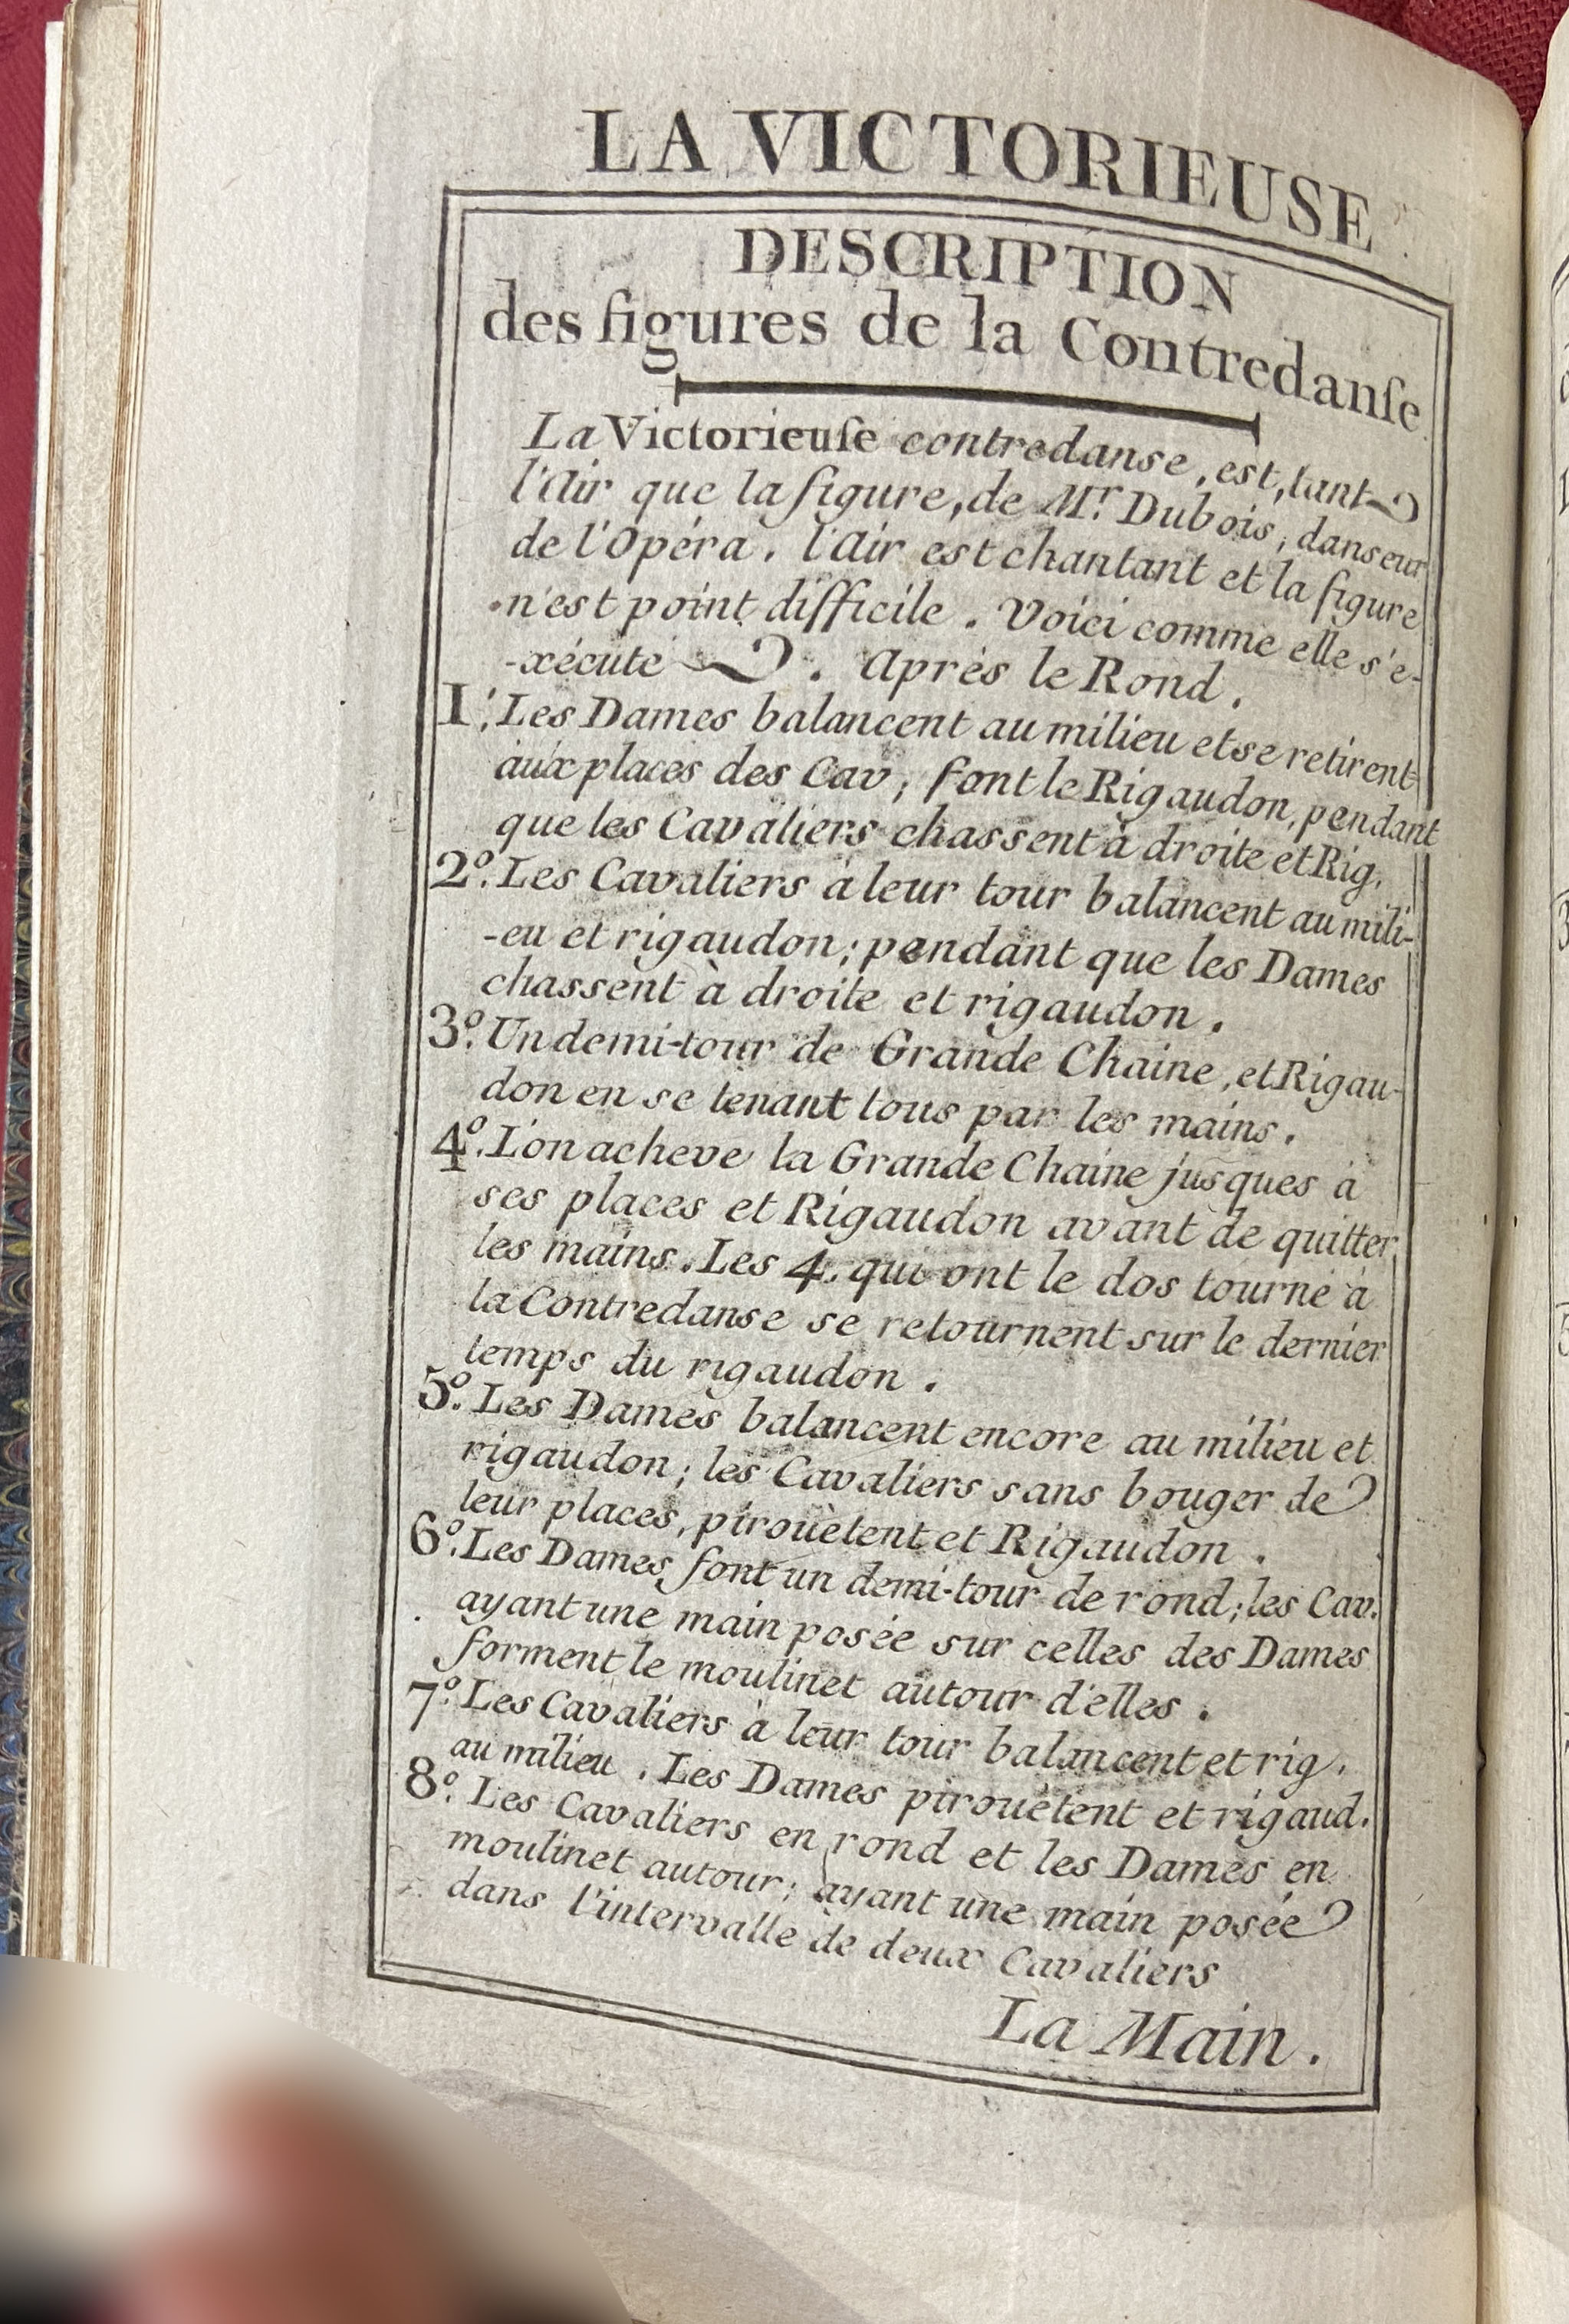 LA VICTORIEUSE
DESCRIPTION
des figures de la Contredanſe
La Victorieuſe contredanse, est, tant
l'Air que la figure, de Mr. Dubois, danseur
de l'Opéra. l'Air est chantant et la figure
n'est point difficile. Voici comme elle s'e-
-xécute. Aprés le Rond.
1º. Les Dames balancent au milieu et se retirent
aux places des Cav; font le Rigaudon, pendant
que les Cavaliers chassent à droite et Rig.
2º. Les Cavaliers à leur tour balancent au mili-
-eu et rigaudon; pendant que les Dames
chassent à droite et rigaudon.
3º. Un demi-tour de Grande Chaine, et Rigau-
don en se tenant tous par les mains.
4º. L'on acheve la Grande Chaine jusques à
ses places et Rigaudon avant de quitter
les mains. Les 4. qui ont le dos tourné à
la Contredanse se retournent sur le dernier
temps du rigaudon.
5º. Les Dames balancent encore au milieu et
rigaudon; les Cavaliers sans bouger de
leur places, pirouètent et Rigaudon.
6º. Les Dames font un demi-tour de rond; les Cav.
ayant une main posée sur celles des Dames
forment le moulinet autour d'elles.
7º. Les Cavaliers à leur tour balancent et rig.
au milieu. Les Dames pirouètent et rigaud.
8º. Les Cavaliers en rond et les Dames en
moulinet autour; ayant une main posée
dans l'intervalle de deux Cavaliers
La Main.